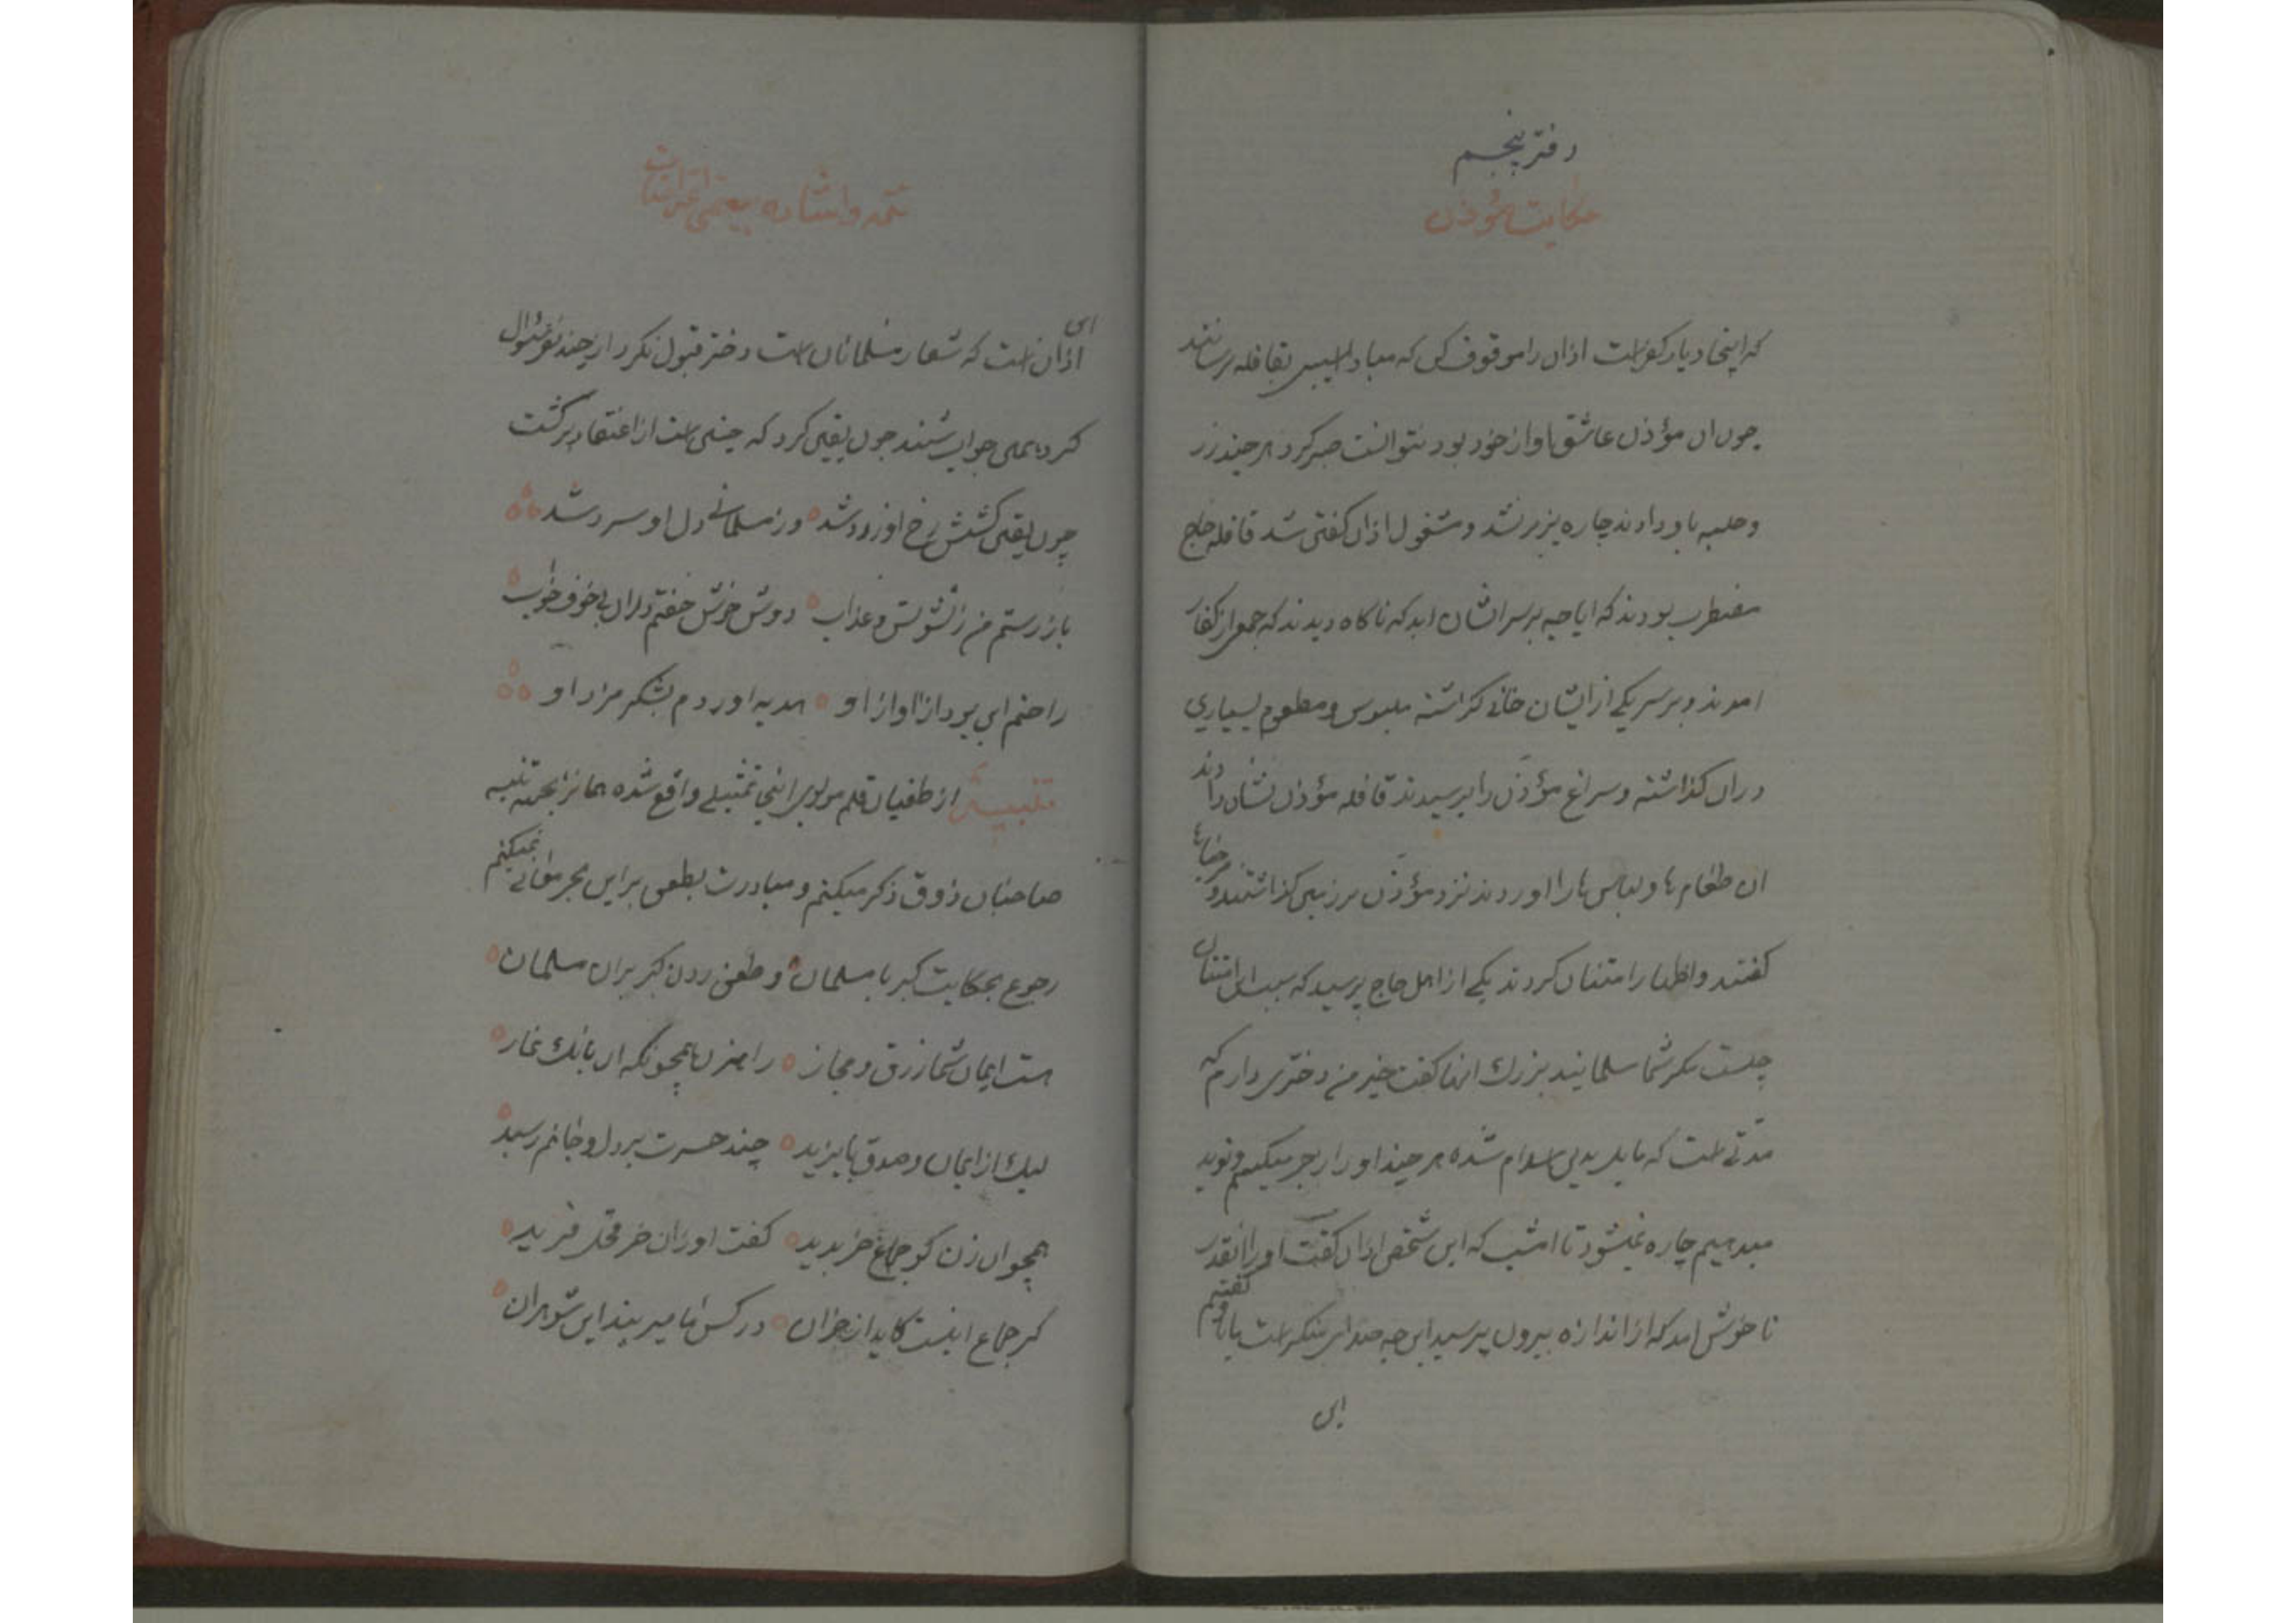 دفتر پنجم
حکایت مؤذن
که اینجا دیار کفر است اذان را موقوف کن که مبادا اسیبی بقافله برسانند
چون ان مؤذن عاشق اواز خود بود نتوانست صبر کرد هر چند زر
و حلیه باو دادند چاره پزیر نشد و مشغول اذان کفتن شد قافله حاج
مضطرب بودند که ایا چه بر سر انشان اید که ناکاه دیدند که جمعی از کفار
امدند و بر سر یکی از ایشان خانی کزاشته ملبوس و مطعوم بسیاری
دران کذاشته و سراغ مؤذن را پرسیدند قافله مؤذن نشان دادند
ان طعام ها و لباس ها را اوردند نزد مؤذن بر زمین کذاشتند و مرحباها
کفتند و اظهار امتنان کردند یکی از اهل حاج پرسید که سبب این امتنان
چیست مکر شما مسلمانید بزرك انها کفت خیر من دختری دارم که
مدتی است که مایل بدین اسلام شده هر چند او را زجر میکنیم و نوید
میدهیم چاره نمیشود تا امشب که این شخص اذان کفت او را انقدر
ناخوش امد که از اندازه بیرون پرسید این چه صدای منکر است باو کفتیم
این
تتمه و اشاره ببعضی
این اذان است که شعار مسلمانان است دختر قبول نکرد از چند نفر سئوال
کرد همین جواب شنید چون یقین کرد که چنین است از اعتقاد برکشت
چون یقین کشتش رخ او زرد شد ورز مسلمانی دل او سرد شد
باز رستم من ز تشویش و عذاب دوش خوش خفتم دران بی خوف خواب
راحتم این بود از اواز او هدیه اوردم بشکر مرد او
تنبیه از طغیان قلم مولوی اینجا تمثیلی واقع شده همانرا بجهة تنبیه
صاحبان ذوق ذکر میکنم و مبادرت بطعن بر این بحر معانی نمیکنم
رجوع بحکایت کبر با مسلمان و طعن زدن کبر بران مسلمان
هست ایمان شما زرق و مجاز راهزن همچونکه ان بانك نماز
لیك از ایمان و صدق بایزید چند حسرت بر دل و جانم رسید
همچو ان زن کو جماع خر بدید کفت او زان خر فحل فرید
کر جماع اینست کاید از خران در کس ما میریند این شوهران